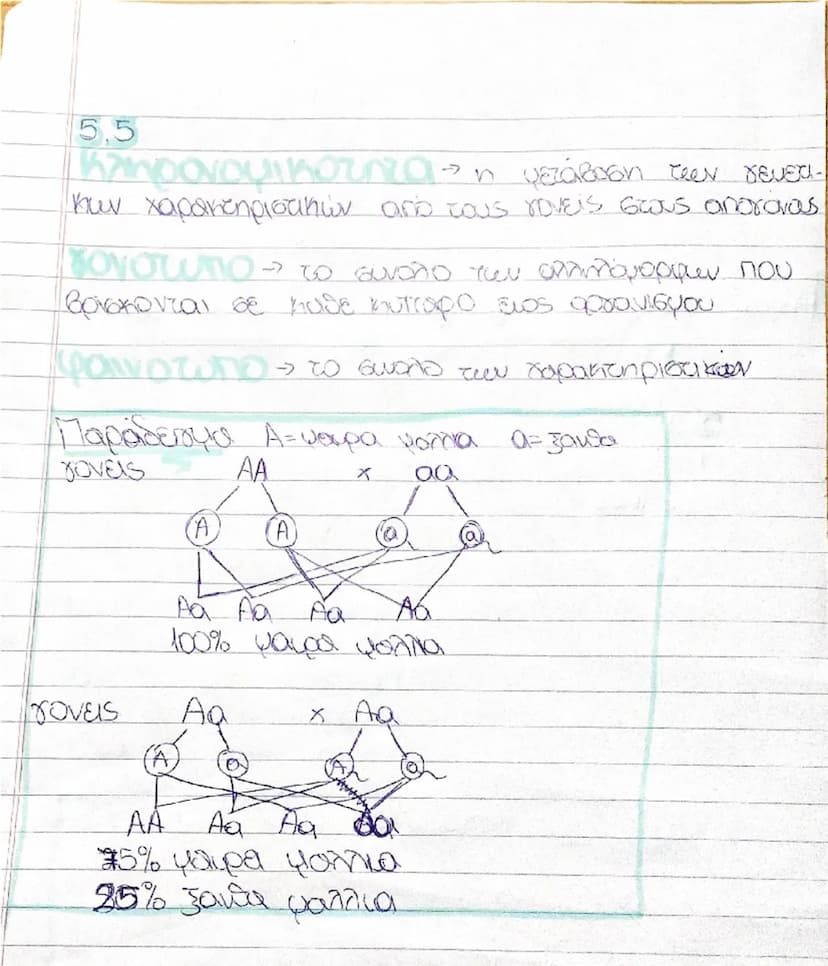 5.5
Κληρονομικότητα → η μετάβαση των γενετι-
κων χαρακτηριστικών από τους γονείς στους απογόνας
γονοτυπο → το συνολο των αλληλόμορφων που
βρισκονται σε καθε κυτταρο ενος οργανισμου
φαινοτυπο → το συνολο των χαρακτηριστικών
Παράδειγμα A=μαυρα μαλλια a=ξανθα
γονεις AA x aa
A A a a
Aa Aa Aa Aa
100% μαυρα μαλλια
γονεις Aa x Aa
A a A a
AA Aa Aa aa
75% μαυρα μαλλια
25% ξανθα μαλλια